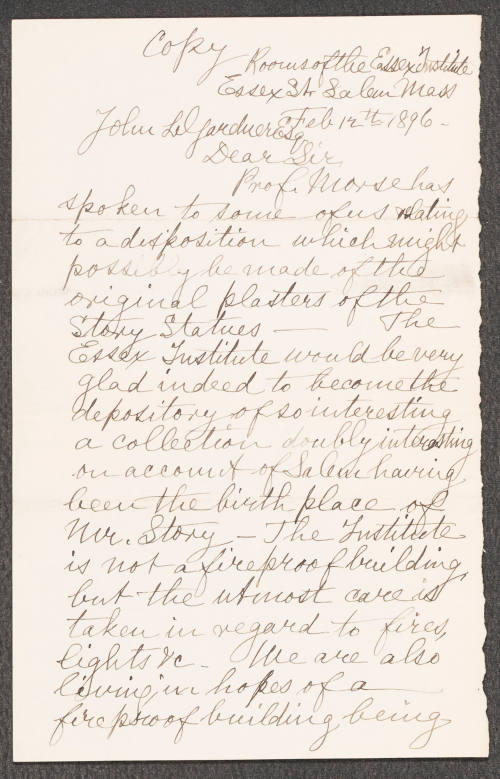 Copy
Rooms of the Essex Institute
Essex St. Salem Mass
Feb 12th 1896-
John L Gardner Esq
Dear Sir
Prof. Morse has
spoken to some of us relating
to a disposition which might
possibly be made of the
original plasters of the
Story Statues — The
Essex Institute would be very
glad indeed to become the
depository of so interesting
a collection doubly interesting
on account of Salem having
been the birth place of
Mr. Story — The Institute
is not a fireproof building,
but the utmost care is
taken in regard to fires,
lights &c - We are also
living in hopes of a
fireproof building being